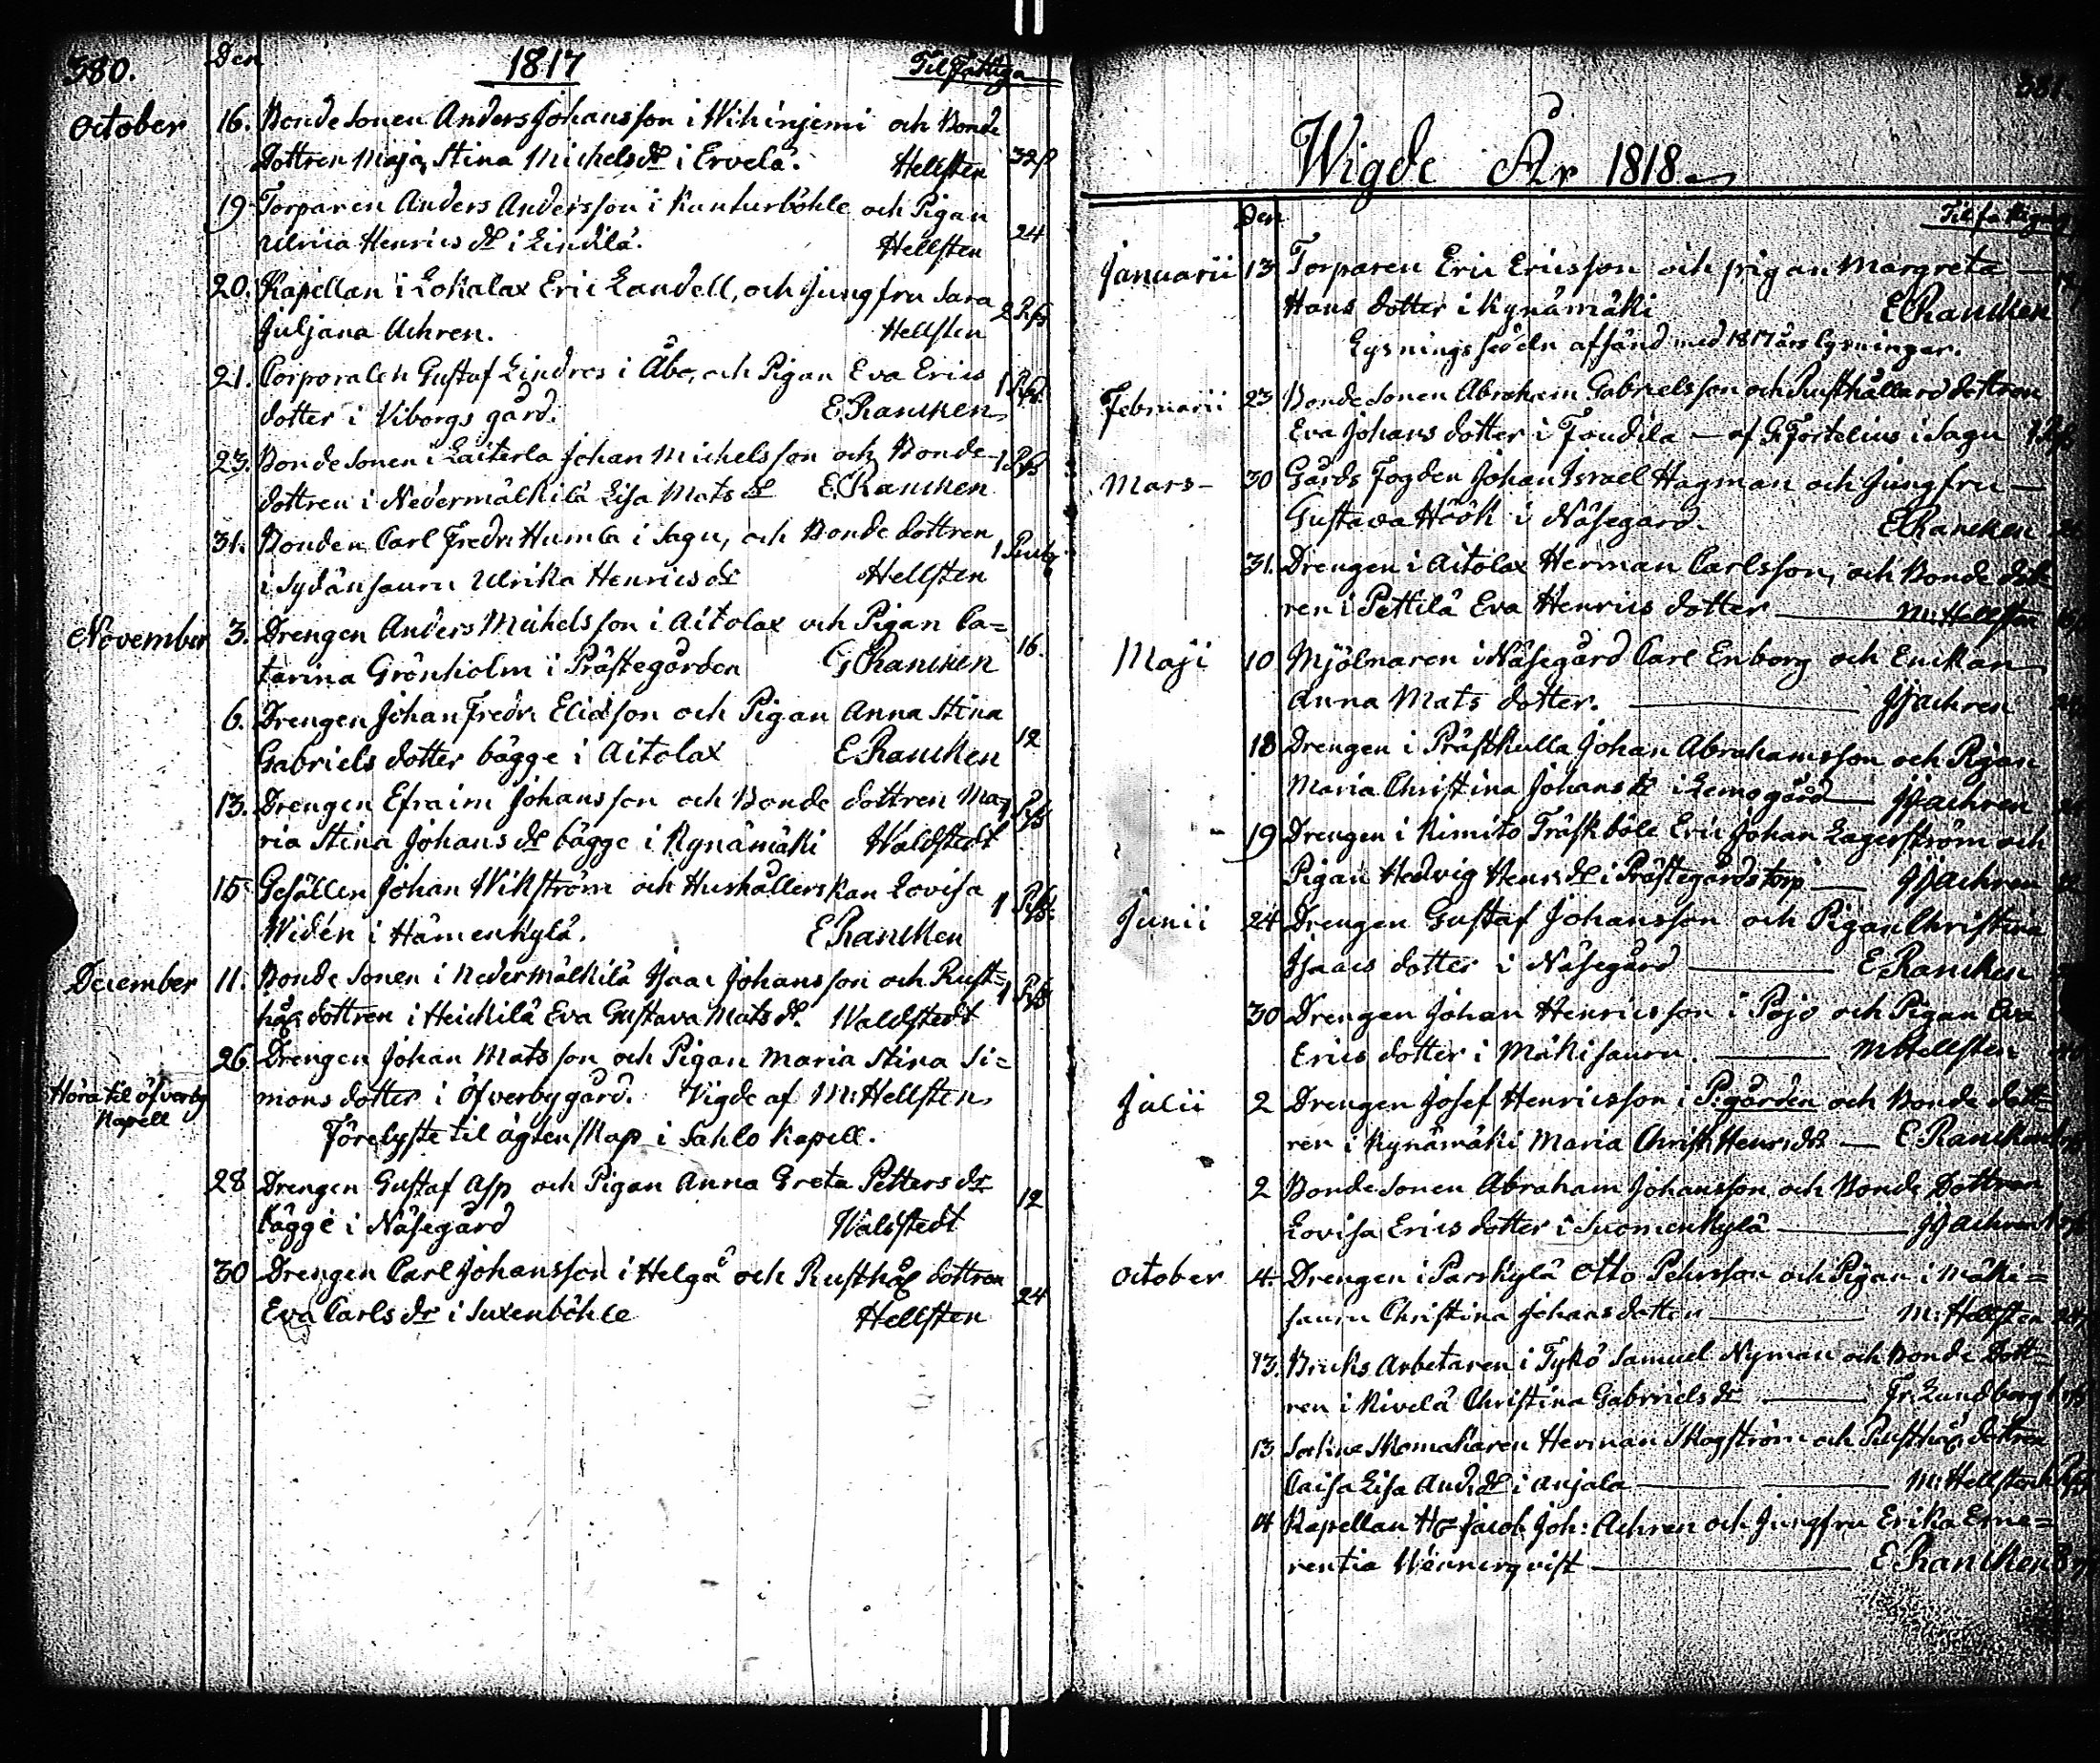 380.
Den
1817
Til Fattiga
October 16. Bonde Sonen Anders Johansson i Wihiniemi och Bonde
dottren Maja Stina Michels dr i Ervelä. Hellsten 32 s
19 Torparen Anders Andersson i Kunturböhle och Pigan
Ulrica Henrics dr i Lindilä. Hellsten 24
20. Kapellan i Lokalax Eric Landell, och Jungfru Sara
Juljana Achren. Hellsten 2 Rs
21. Corporalen Gustaf Lindros i Åbo, och Pigan Eva Erics
dotter i Viborgs gård. E. Rancken 1 Rs
23. Bonde Sonen i Laiterla Johan Michelsson och Bonde
dottren i Nedermälkilä Lisa Mats dr E. Rancken 1 Rs
31. Bonden Carl Fredr: Humla i Sagu, och Bonde dottren
i Sydänsauru Ulrika Henrics dr Hellsten
November 3. Drengen Anders Michelsson i Aitolax och Pigan Ca=
tarina Grönholm i Prästegården G Rancken 16.
6. Drengen Johan Fredr: Eliasson och Pigan Anna Stina
Gabriels dotter bägge i Aitolax E. Rancken 12
13. Drengen Efraim Johansson och Bonde dottren Ma
ria Stina Johans dr bägge i Kynämäki Waldstedt 1 Rs
15 Gesällen Johan Wikström och Hushållerskan Lovisa
Widén i Hämenkylä. E Rancken 1 Rs
December 11. Bonde Sonen i Nedermälkilä Isaac Johansson och Rust=
håll. dottren i Heickilä Eva Gustava Mats dr. Waldstedt 1 Rs
26 Drengen Johan Matsson och Pigan Maria Stina Si=
Höra til öfverby mons dotter i Öfverby gård. Vigde af M: Hellsten
Kapell
Förelyste til ägtenskap i Sahlo Kapell.
28 Drengen Gustaf Asp och Pigan Anna Greta Petters dr
bägge i Näsegård Waldstedt 12
30 Drengen Carl Johansson i Helgå och Rusthåll. dottren
Eva Carls dr i Suxenböhle Hellsten 24
381.
Wigde År 1818
Den
Til fattiga
Januarii 13 Torparen Eric Ericsson och pigan Margreta
Hans dotter i Kynämäki E Rancken
Lysnings sedeln afsänd med 1817 års lysningar.
Februarii 23 Bonde Sonen Abraham Gabrielsson och Rusthållare dottren
Eva Johans dotter i Tondila af G: Fortelius i Sagu
Mars 30 Gårds Fogden Johan Israel Hagman och Jungfru
Gustava Höök i Näsegård. E Rancken
31. Drengen i Aitolax Herman Carlsson, och Bonde dott
ren i Pettilä Eva Henrics dotter M: Hellsten
Maji 10 Mjölnaren i Näsegård Carl Enborg och Enckan
Anna Mats dotter. JJ Achren
18 Drengen i Präskulla Johan Abrahamsson och Pigan
Maria Christina Johans dr i Lemo gård JJ Achren
19 Drengen i Kimito Träskböle Eric Johan Lagerström och
Pigan Hedvig Henr: dr i Prästegårdstorp JJ Achren
Junii 24 Drengen Gustaf Johansson och Pigan Christina
Isaacs dotter i Näsegård E. Rancken
30 Drengen Johan Henricsson i Pojo och Pigan Eva
Erics dotter i Mäkisauru. M Hellsten
Julii 2 Drengen Josef Henricsson i P:gården och Bonde dott=
ren i Kynämäki Maria Christ: Henr: dr E Rancken
2 Bonde Sonen Abraham Johansson och Bonde Dottren
Lovisa Erics dotter i Suomenkylä JJ Achren
October 4. Drengen i Parskylä Otto Pehrsson och Pigan i Mäki=
sauru Christina Johans dotter M: Hellsten
13. Bruks Arbetaren i Tykö Samuel Nyman och Bonde Dott=
ren i Kivelä Christina Gabriels dr Fr. Lundborg
13 Sockne Skomakaren Herman Skogström och Rusthåll. dottren
Caisa Lisa And: dr i Anjala M: Hellsten
Kapellan Hr Jacob Joh: Achren och Jungfru Erika Eme=
rentia Wennerqvist E Rancken